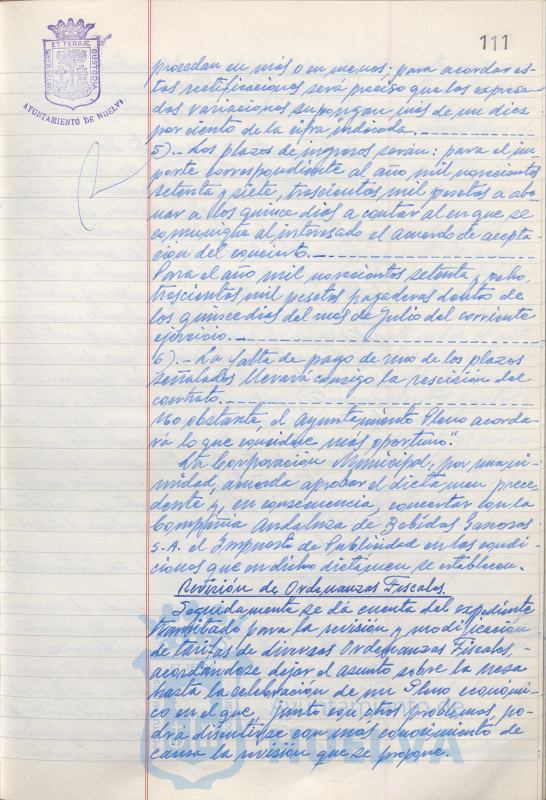 111
PORTUS MARIS ET TERRÆ CUSTODIA
AYUNTAMIENTO DE HUELVA
procedan en más o en menos; para acordar es-
tas rectificaciones será preciso que las expresa-
das variaciones supongan más de un diez
por ciento de la cifra indicada.
5).- Los plazos de ingresos serán: para el im-
porte correspondiente al año mil novecientos
setenta y siete, trescientas mil pesetas a abo-
nar a los quince dias a contar al en que se
comunique al interesado el acuerdo de acepta-
cion del concierto.
Para el año mil novecientos setenta y ocho,
trescientas mil pesetas pagaderas dentro de
los quince dias del mes de Julio del corriente
ejercicio.
6).- La falta de pago de uno de los plazos
señalados llevará consigo la rescisión del
contrato.
No obstante, el Ayuntamiento Pleno acorda-
rá lo que considere más oportuno."
La Corporación Municipal, por unani-
midad, acuerda aprobar el dictamen prece-
dente y, en consecuencia, concertar con la
Compañia Andaluza de Bebidas Gaseosas
S.A. el Impuesto de Publicidad en las condi-
ciones que en dicho dictámen se establecen.
Revisión de Ordenanzas Fiscales.
Seguidamente se dá cuenta del expediente
tramitado para la revisión y modificación
de tarifas de diversas Ordenanzas Fiscales,
acordándose dejar el asunto sobre la mesa
hasta la celebración de un Pleno económi-
co en el que, junto con otros problemas, po-
drá discutirse con más conocimiento de
causa la revisión que se propone.
Ayuntamiento de
HUELVA